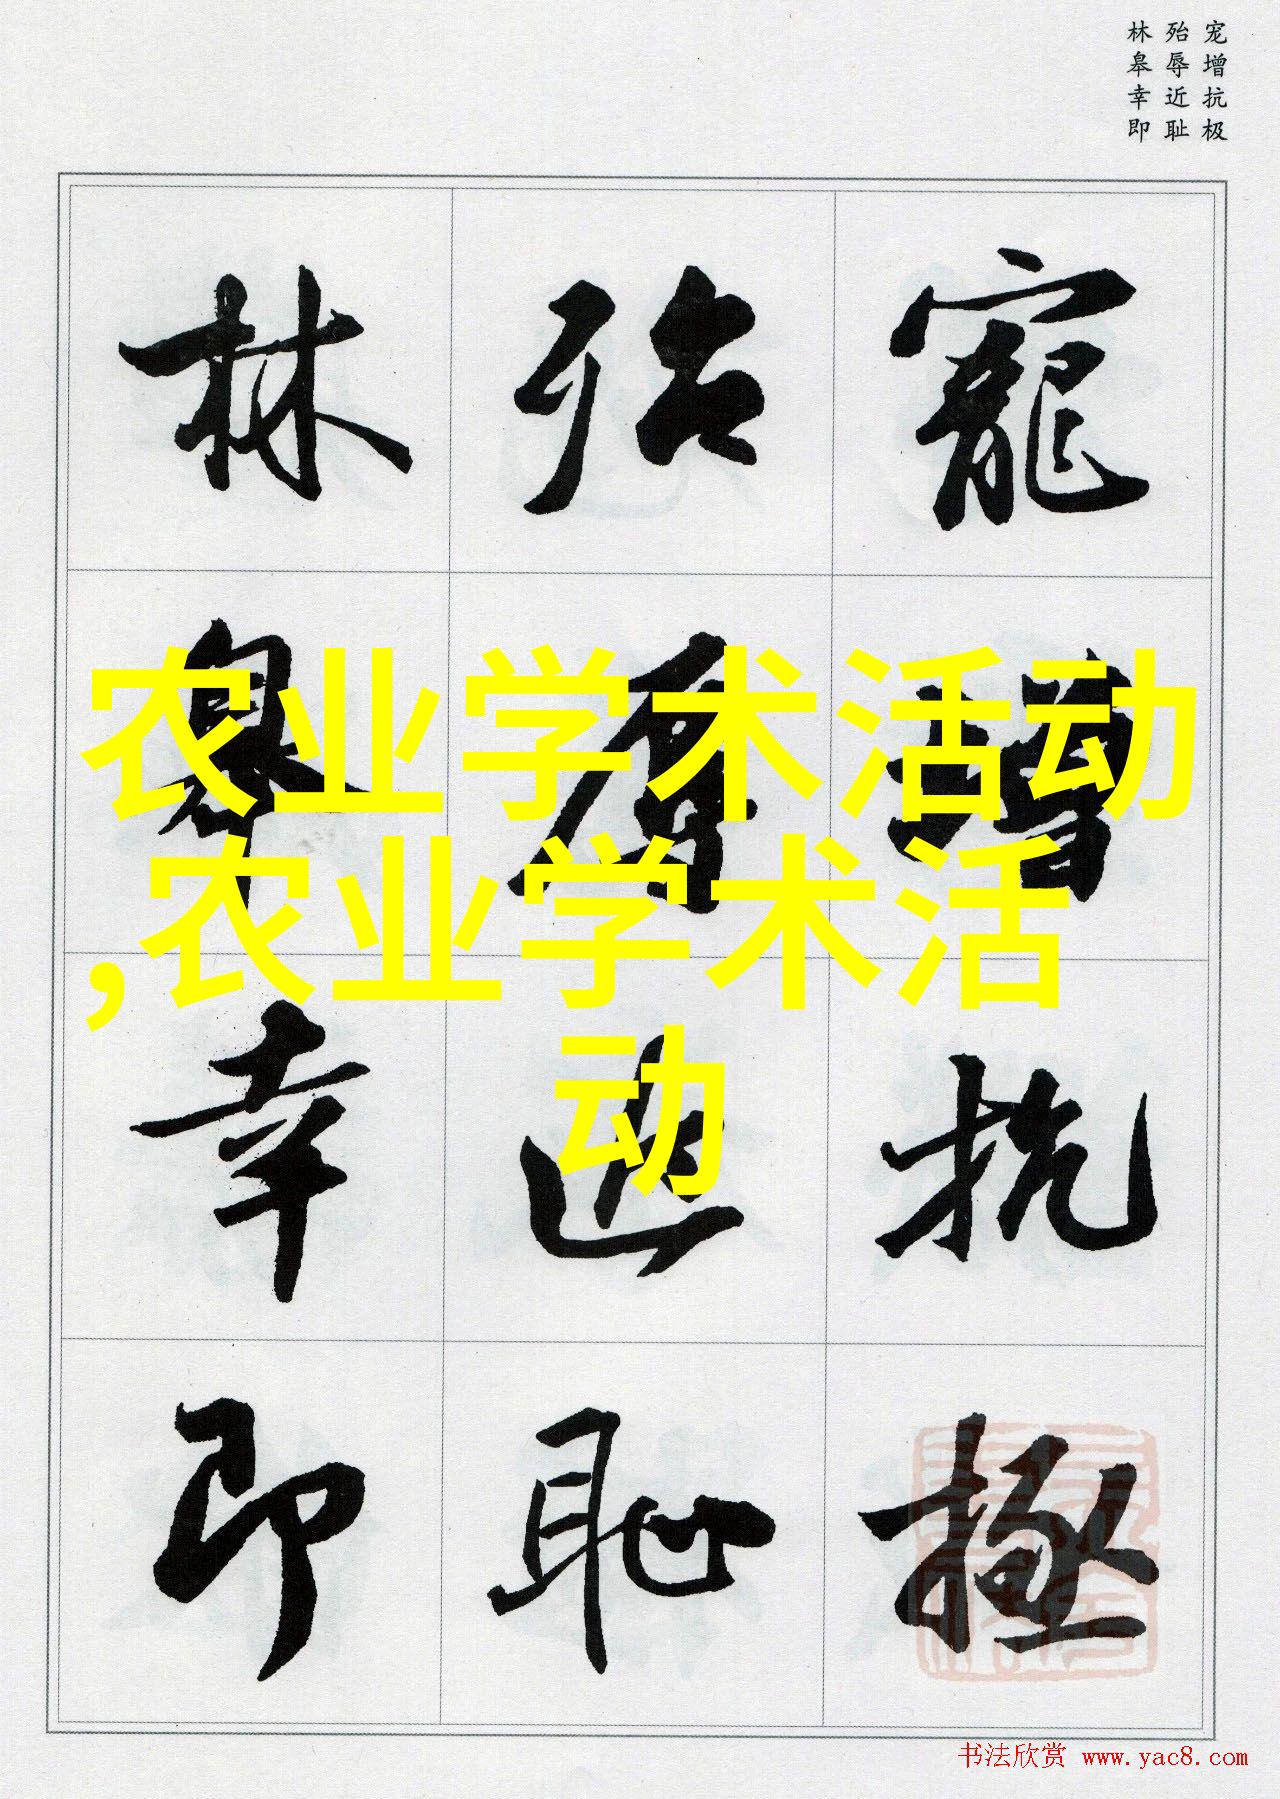 宠增抗极
殆辱近耻
林皋幸即
寵增抗極
殆辱近耻
林皋幸即
农业学术活动
,农业学术活
动
书法欣赏 www.yac8.com